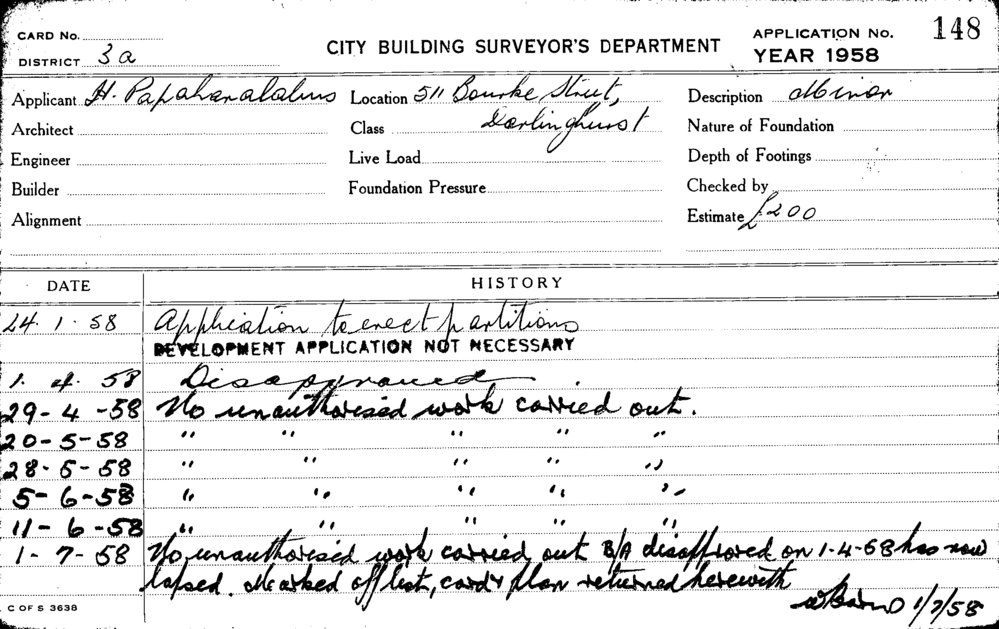 CARD No.
DISTRICT 3a
CITY BUILDING SURVEYOR'S DEPARTMENT
APPLICATION No. 148
YEAR 1958
Applicant H. Location 511 Bourke Street, Description Minor
Architect Class Darlinghurst Nature of Foundation
Engineer Live Load Depth of Footings
Builder Foundation Pressure Checked by
Alignment Estimate £200
DATE HISTORY
24. 1. 58 Application to erect partitions
DEVELOPMENT APPLICATION NOT NECESSARY
1. 4. 58 Disapproved
29-4-58 No unauthorised work carried out.
20-5-58 " " " " "
28-5-58 " " " " "
5-6-58 " " " " "
11-6-58 " " " " "
1-7-58 No unauthorised work carried out B/A disapproved on 1-4-58 has now
lapsed. Marked off list, card & plan returned herewith
1/7/58
C OF S 3638